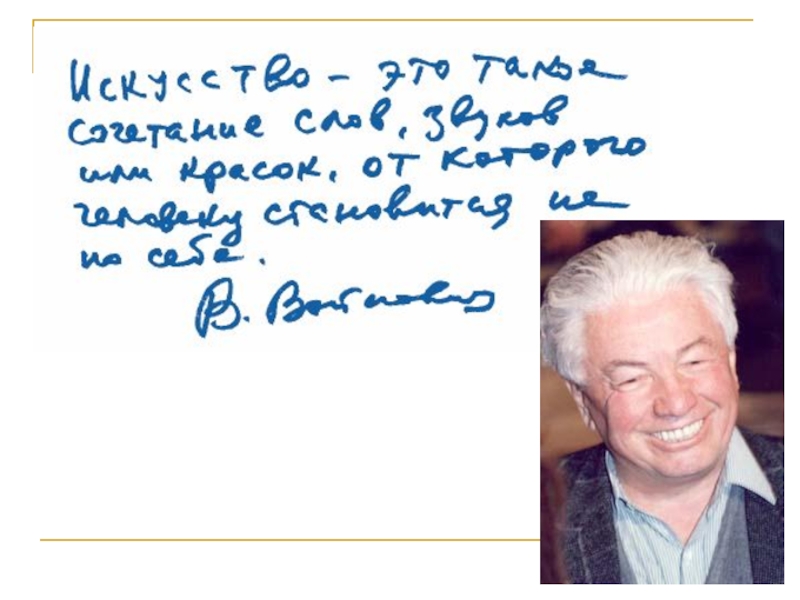 Искусство – это такое
сочетание слов, звуков
или красок, от которого
человеку становится не
по себе.
В. Войнович